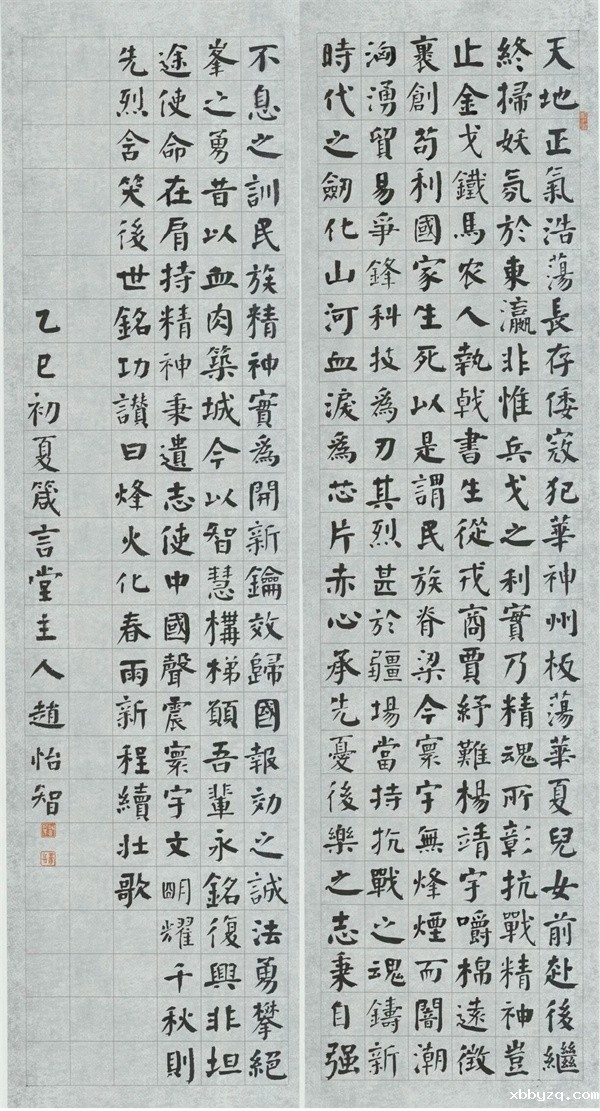 天地正氣浩蕩長存倭寇犯華神州板蕩華夏兒女前赴後繼
終掃妖氛於東瀛非惟兵戈之利實乃精魂所彰抗戰精神豈
止金戈鐵馬农人執戟書生從戎商賈紓難楊靖宇嚼棉遠徵
裹創苟利國家生死以是謂民族脊梁今寰宇無烽煙而闇潮
洶湧貿易爭鋒科技爲刀其烈甚於疆場當持抗戰之魂鑄新
時代之劒化山河血淚爲芯片赤心承先憂後樂之志秉自强
不息之訓民族精神實爲開新鑰效歸國報効之誠法勇攀絕
峯之勇昔以血肉築城今以智慧構梯願吾輩永銘復興非坦
途使命在肩持精神秉遺志使中國聲震寰宇文明耀千秋則
先烈含笑後世銘功讚曰烽火化春雨新程續壯歌
乙巳初夏箴言堂主人趙怡智
xbbyzq.com